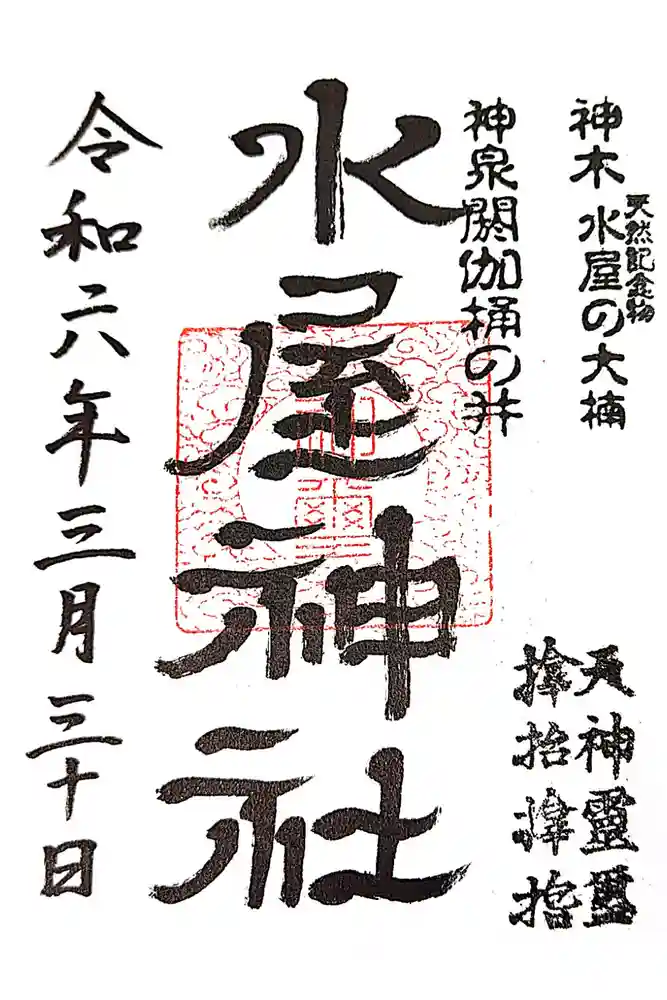 神木 水屋の大楠
天然記念物
神泉閼伽桶の井
水屋神社
令和六年三月三十日